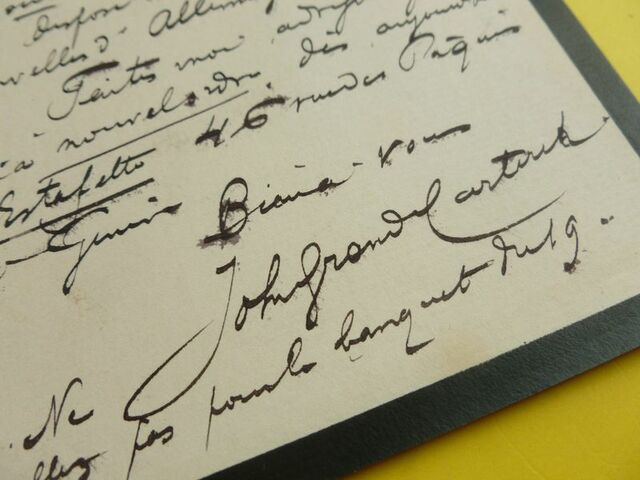 dispos
nouvelles d'Allem
Faites moi adres
nouvel ordre, dès aujour
Estafette 46 rue des Pâquis
Genève Bien à vous
John Grand Carteret
Ne
pas pour le banquet du 19.